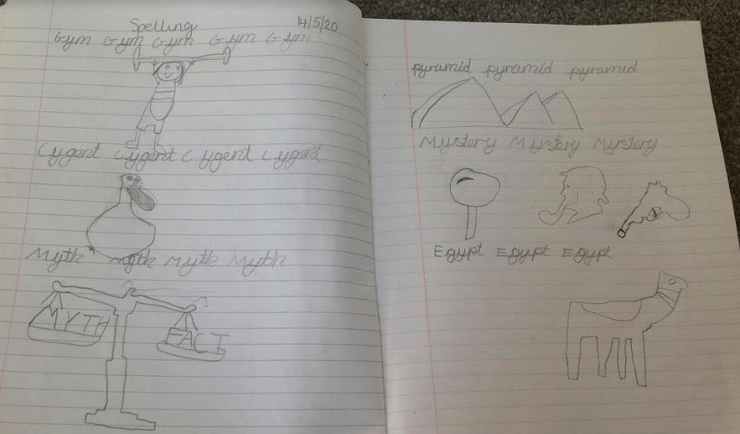 Spelling 14/5/20
Gym Gym Gym Gym Gym
Cygent Cygent Cygent Cygent
Myth Myth Myth Myth
MYTH FACT
pyramid pyramid pyramid
Mystery Mystery Mystery
Egypt Egypt Egypt